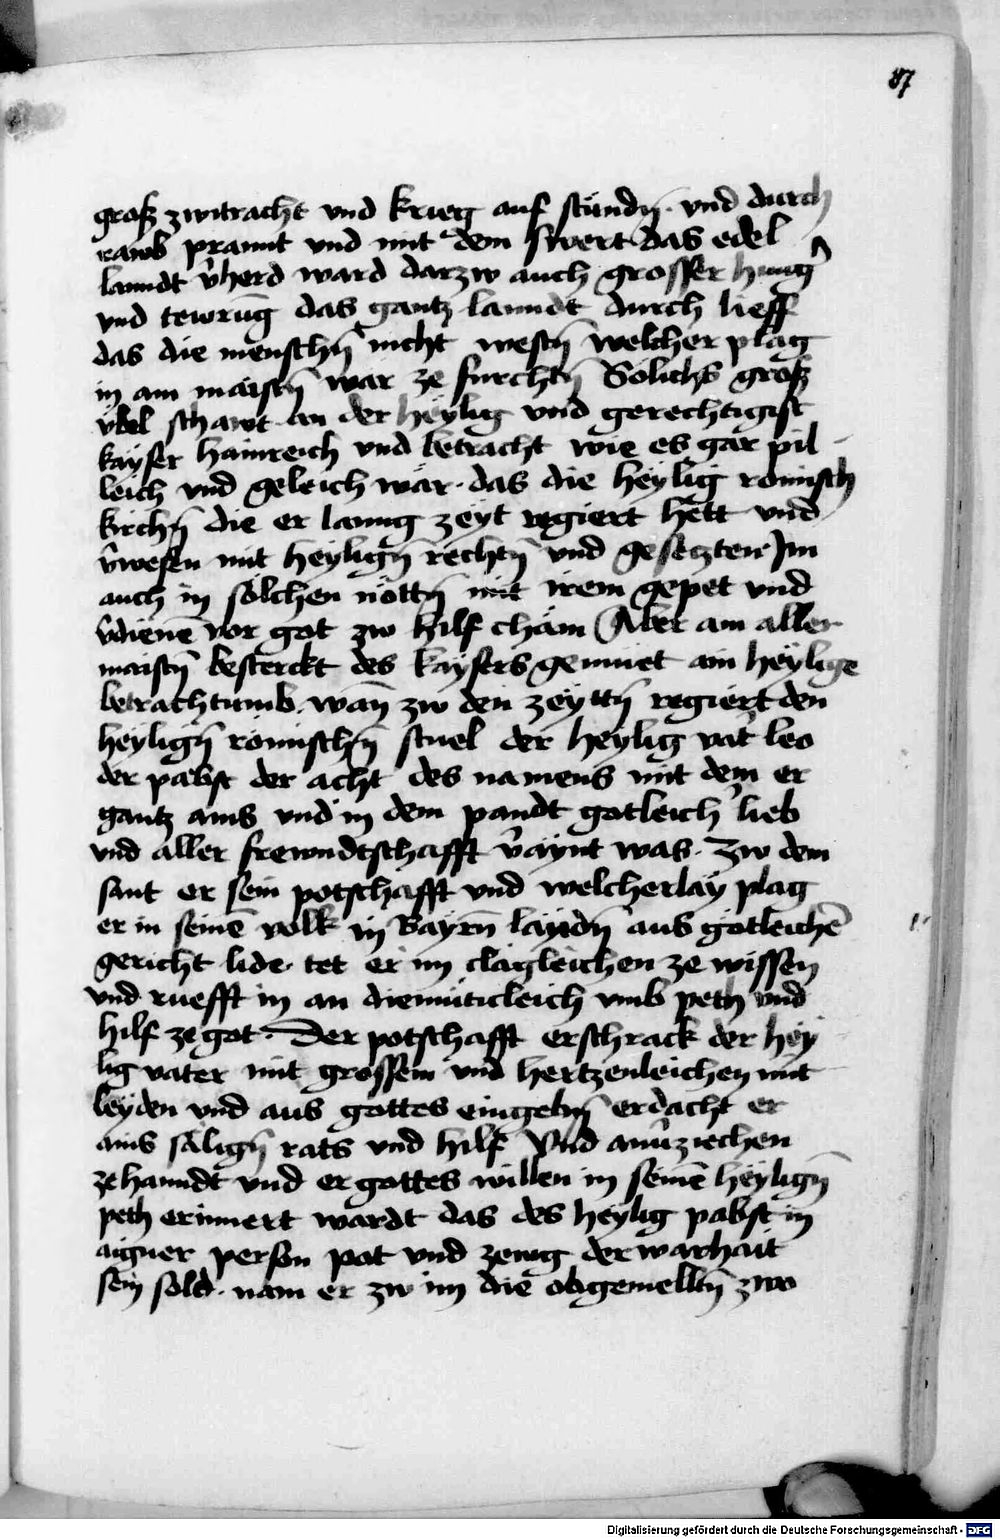 87
groß zwitracht vnd krieg auf stúndn̄. vnd durch
rawb prannt vnd mit dem swert das edel
lanndt v̄herd ward darzw auch grosser hunḡ
vnd tewrūg das gantz lanndt durch lieff
das die menschn̄ nicht westn̄ welcher plag
in am maistn̄ war ze furchtn̄ Solichs groß
v̈bel schawt an der heylig vnd gerechtigist
kayser hainreich vnd betracht wie es gar pil-
leich vnd geleich wär. das die heylig römisch
kirchn̄ die er lanng zeyt regiert hett vnd
v̄wesen mit heylign̄ rechtn̄ vnd gesetzten Im
auch in sölchen nöttn̄ mit irem gepet vnd
v̄dienē vor got zw hilf chäm Aber am aller
maistn̄ besterckt des kaysers gemüet ain heylige
betrachtumb. wan̄ zw den zeyttn̄ regiert den
heylign̄ römischn̄ stuel der heylig vat̄ leo
der pabst der acht des namens mit dem er
gantz ains vnd in dem pandt gotleich̄ lieb
vnd aller frewndtschafft v̄aynt was. Zw dem
sant er sein potschafft vnd welcherlay plag
er in seinē volk in Bayrn̄ laydn̄ aus götleichē
gericht lide. tet er im clägleichen ze wissen
vnd ruefft in an diemüticleich vmb peth vnd
hilf ze got. Der potschafft erschrack der hey
lig vater mit grossem vnd hertzenleichen mit
leyden vnd aus gottes eingebn̄ erdacht er
ains sälign̄ rats vnd hilf Vnd anv̄ziechen
zehanndt vnd er gottes willen in seinē heylign̄
peth erinnert wardt das des heylig pabst in
aigner person pot vnd zewg der warhait
sein solt. nam er zw im die obgemeltn̄ zwo
Digitalisierung gefördert durch die Deutsche Forschungsgemeinschaft - DFG